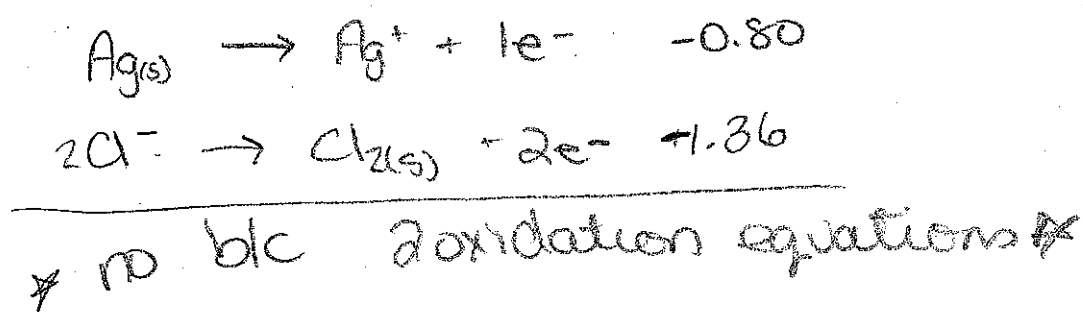 Ag(s) → Ag⁺ + 1e⁻ -0.80
2Cl⁻ → Cl₂(s) + 2e⁻ -1.36
* no b/c 2 oxidation equations *